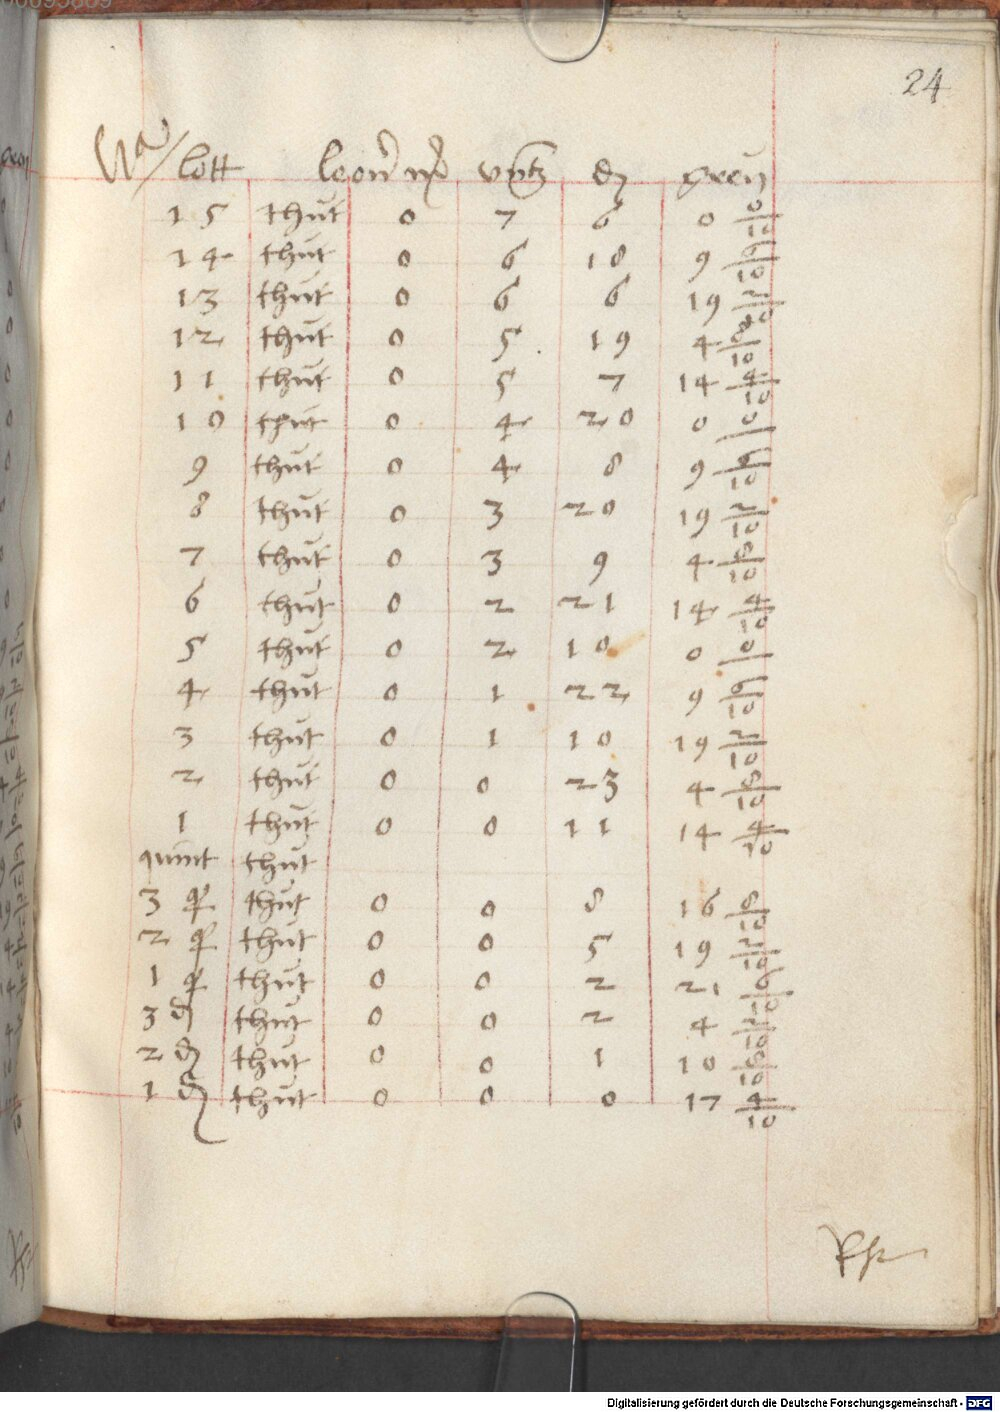 24
Wa/ lott leon̄ mͬ vntz ₰ gren
15 thut 0 7 6 0 0/10
14 thut 0 6 18 9 6/10
13 thut 0 6 6 19 2/10
12 thut 0 5 19 4 8/10
11 thut 0 5 7 14 4/10
10 thut 0 4 20 0 0/
9 thut 0 4 8 9 6/10
8 thut 0 3 20 19 2/10
7 thut 0 3 9 4 8/10
6 thut 0 2 21 14 4/10
5 thut 0 2 10 0 0/
4 thut 0 1 22 9 6/10
3 thut 0 1 10 19 2/10
2 thut 0 0 23 4 8/10
1 thut 0 0 11 14 4/10
quint thut
3 q thut 0 0 8 16 8/10
2 q thut 0 0 5 19 2/10
1 q thut 0 0 2 21 6/10
3 ₰ thut 0 0 2 4 2/10
2 ₰ thut 0 0 1 10 8/10
1 ₰ thut 0 0 0 17 4/10
Digitalisierung gefördert durch die Deutsche Forschungsgemeinschaft - DFG